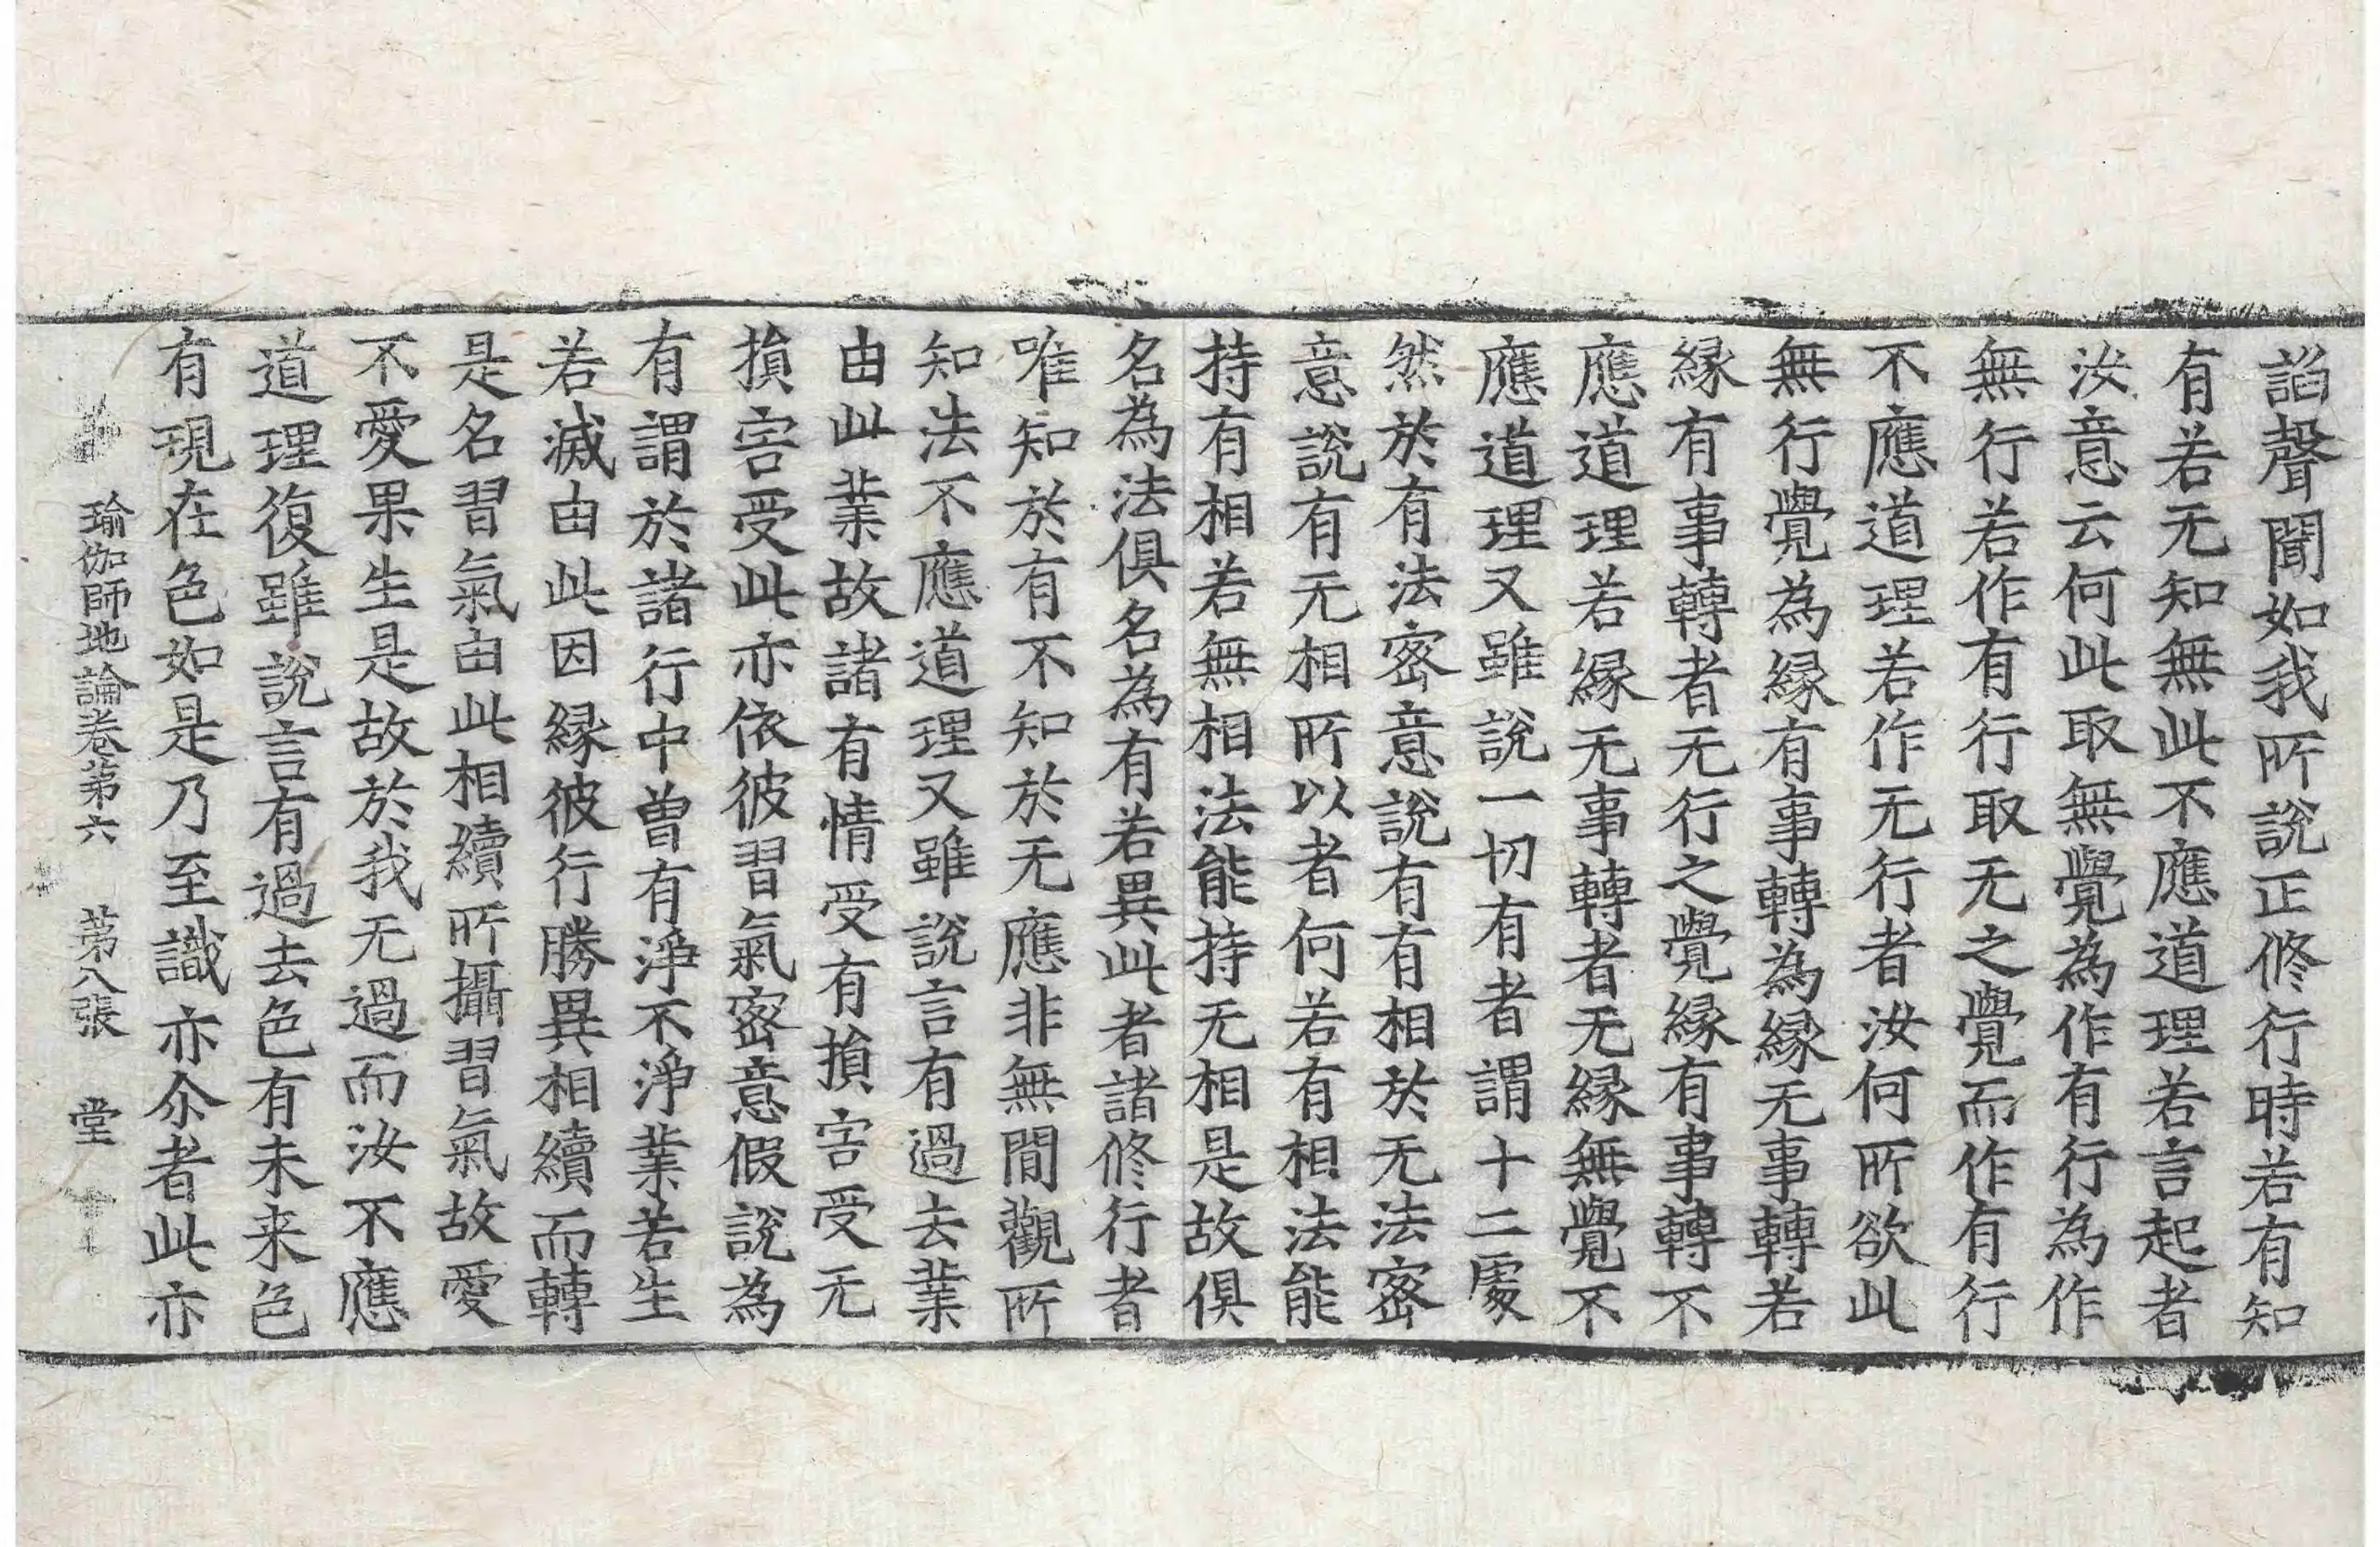 諂聲聞如我所說正修行時若有知
有若无知無此不應道理若言起者
汝意云何此取無覺為作有行為作
無行若作有行取无之覺而作有行
不應道理若作无行者汝何所欲此
無行覺為緣有事轉為緣无事轉若
緣有事轉者无行之覺緣有事轉不
應道理若緣无事轉者无緣無覺不
應道理又雖說一切有者謂十二處
然於有法密意說有有相於无法密
意說有无相所以者何若有相法能
持有相若無相法能持无相是故俱
名為法俱名為有若異此者諸修行者
唯知於有不知於无應非無間觀所
知法不應道理又雖說言有過去業
由此業故諸有情受有損害受无
損害受此亦依彼習氣密意假說為
有謂於諸行中曾有淨不淨業若生
若滅由此因緣彼行勝異相續而轉
是名習氣由此相續所攝習氣故愛
不愛果生是故於我无過而汝不應
道理復雖說言有過去色有未来色
有現在色如是乃至識亦尒者此亦
瑜伽師地論卷第六 第八張 堂